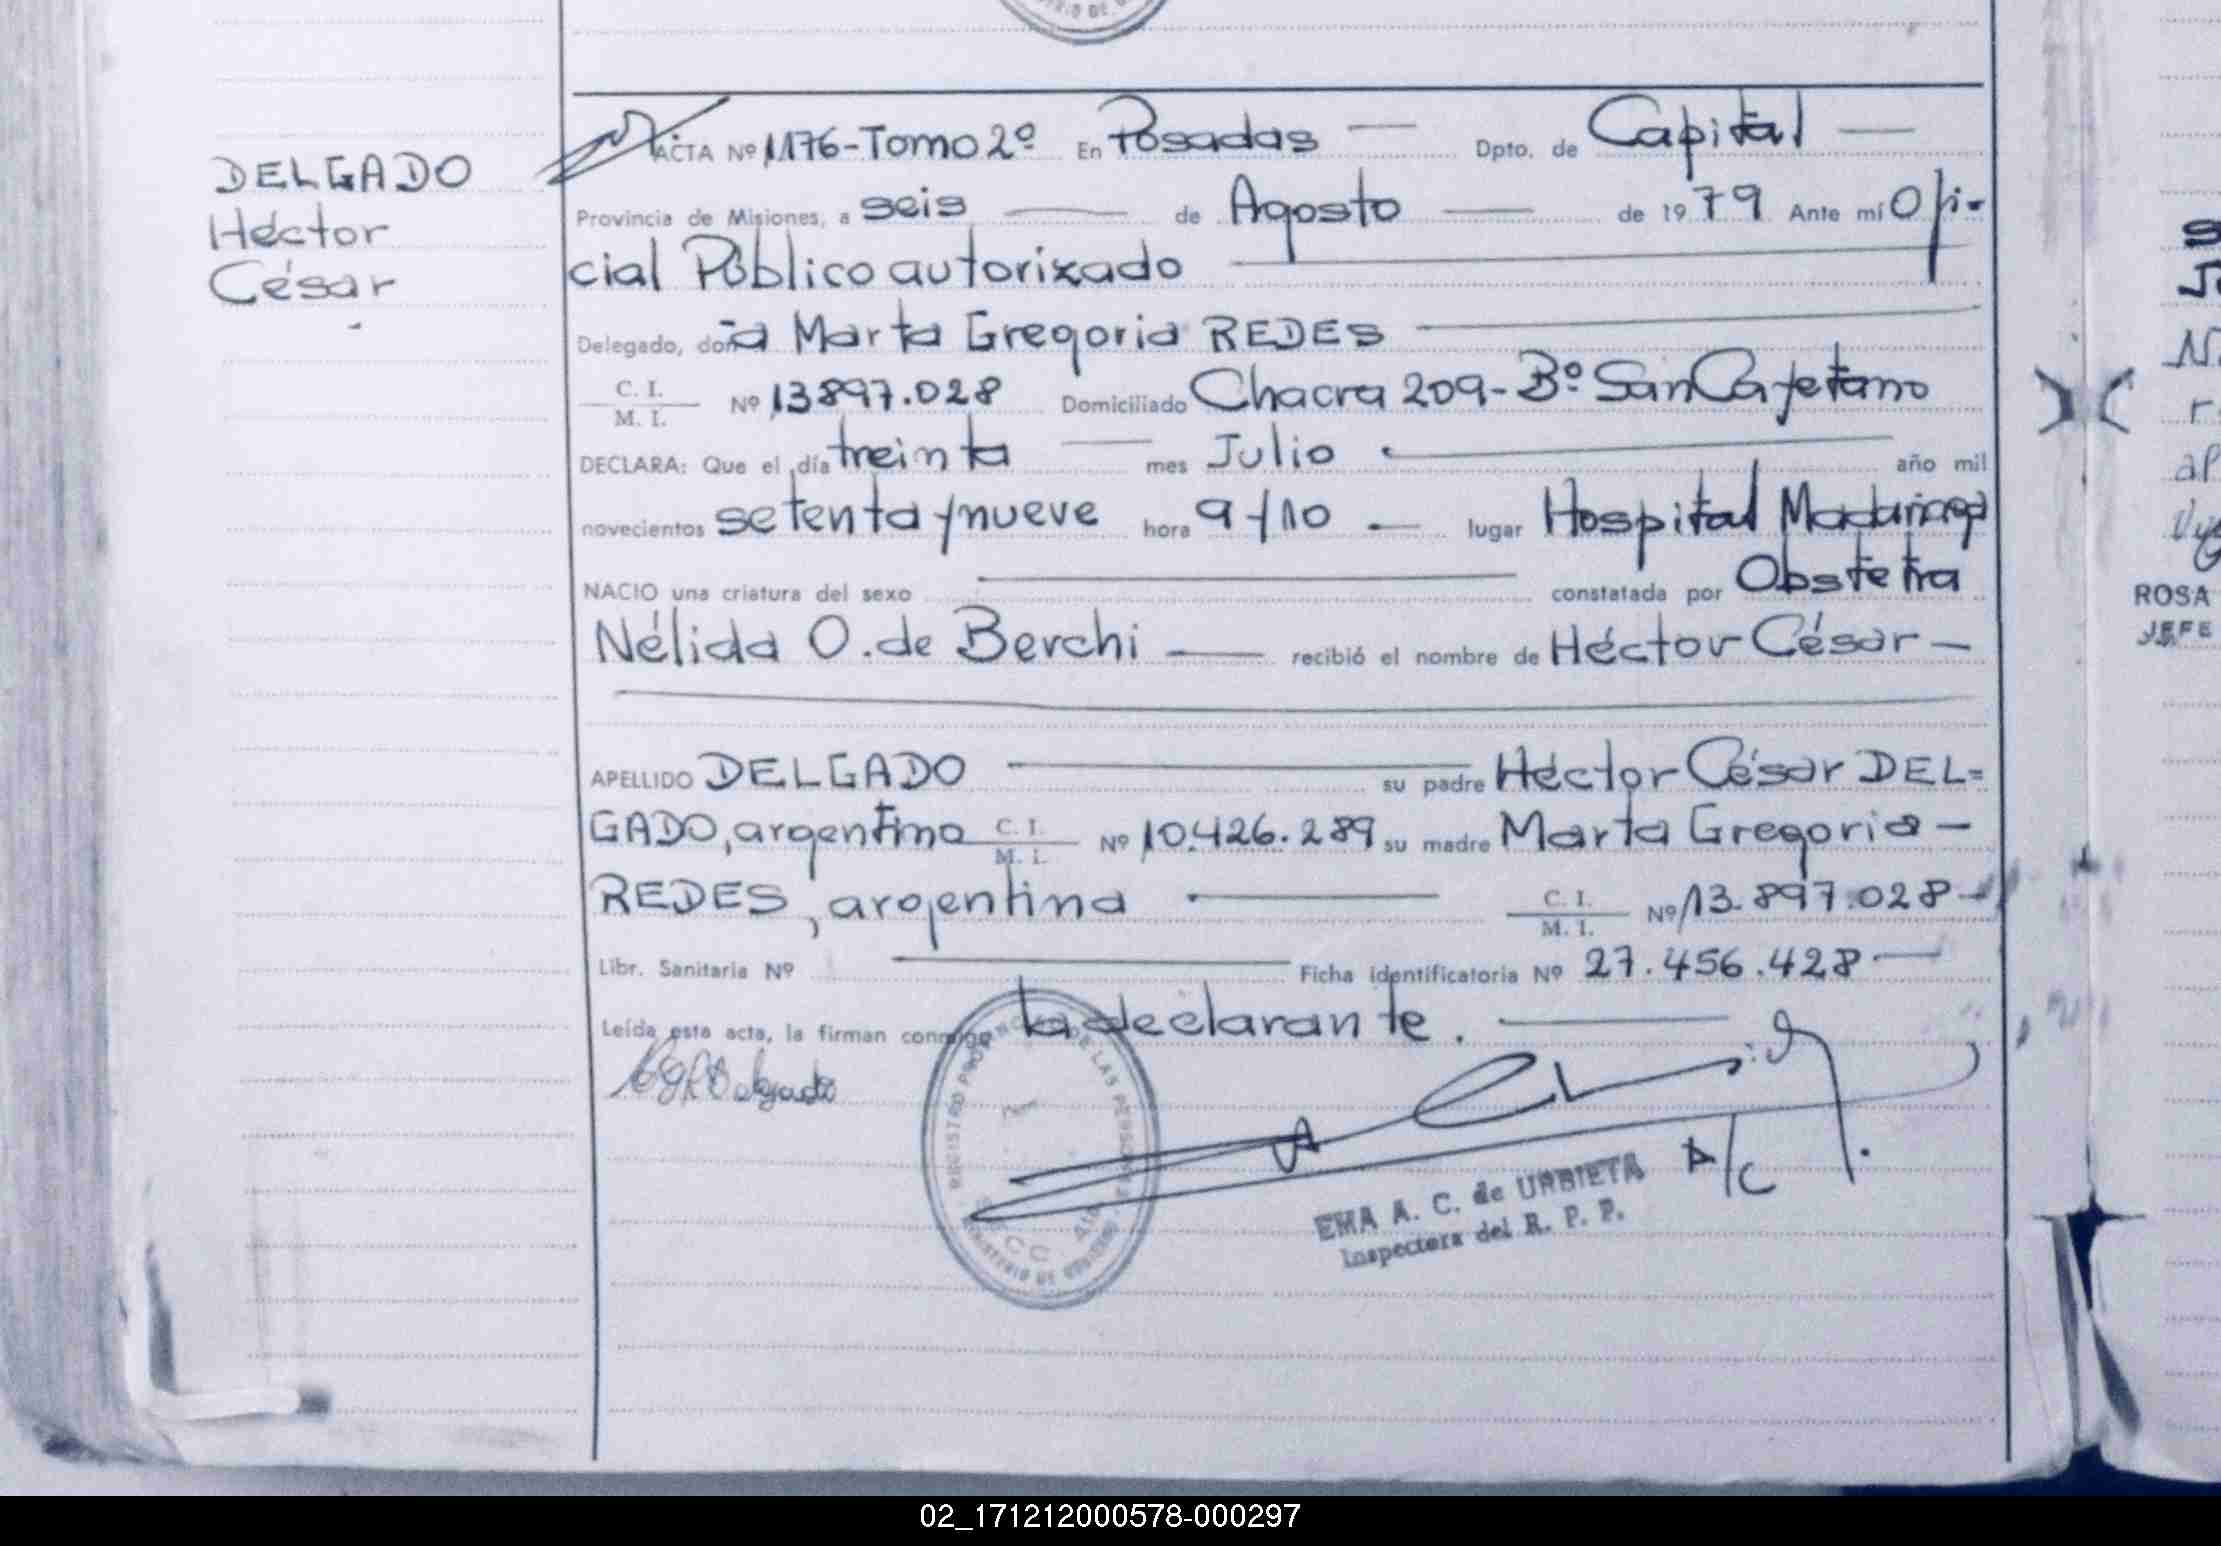 ACTA Nº 1176-Tomo 2º En Posadas Dpto. de Capital
DELGADO
Héctor
César
Provincia de Misiones, a seis de Agosto de 1979 Ante mí Ofi-
cial Público autorizado
Delegado, doña Marta Gregoria REDES
C. I.
M. I. Nº 13897.028 Domiciliado Chacra 209-Bº San Cayetano
DECLARA: Que el día treinta mes Julio año mil
novecientos setenta y nueve hora 9 y 10 lugar Hospital Madariaga
NACIO una criatura del sexo constatada por Obstetra
Nélida O. de Berchi recibió el nombre de Héctor César
APELLIDO DELGADO su padre Héctor César DEL=
GADO, argentino C. I. M. I. Nº 10.426.289 su madre Marta Gregoria
REDES, argentina C. I. M. I. Nº 13.897.028
Libr. Sanitaria Nº Ficha identificatoria Nº 27.456.428
Leída esta acta, la firman conmigo la declarante.
Delgado
REGISTRO PROVINCIAL DE LAS PERSONAS
MINISTERIO DE GOBIERNO
A/C
EMA A. C. de URBIETA
Inspectora del R. P. P.
ROSA
JEFE
02_171212000578-000297